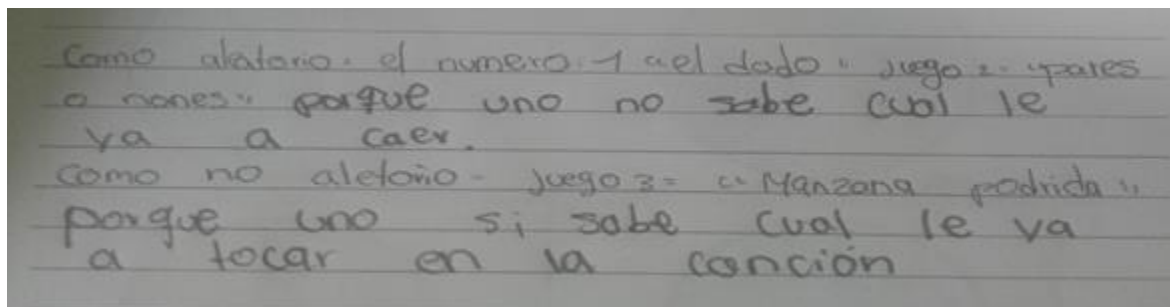 como alatorio. el numero. 1 "el dado" juego 2= "pares
o nones" porque uno no sabe cual le
va a caer.
como no aletorio - juego 3= "Manzana podrida"
porque uno si sabe cual le va
a tocar en la canción